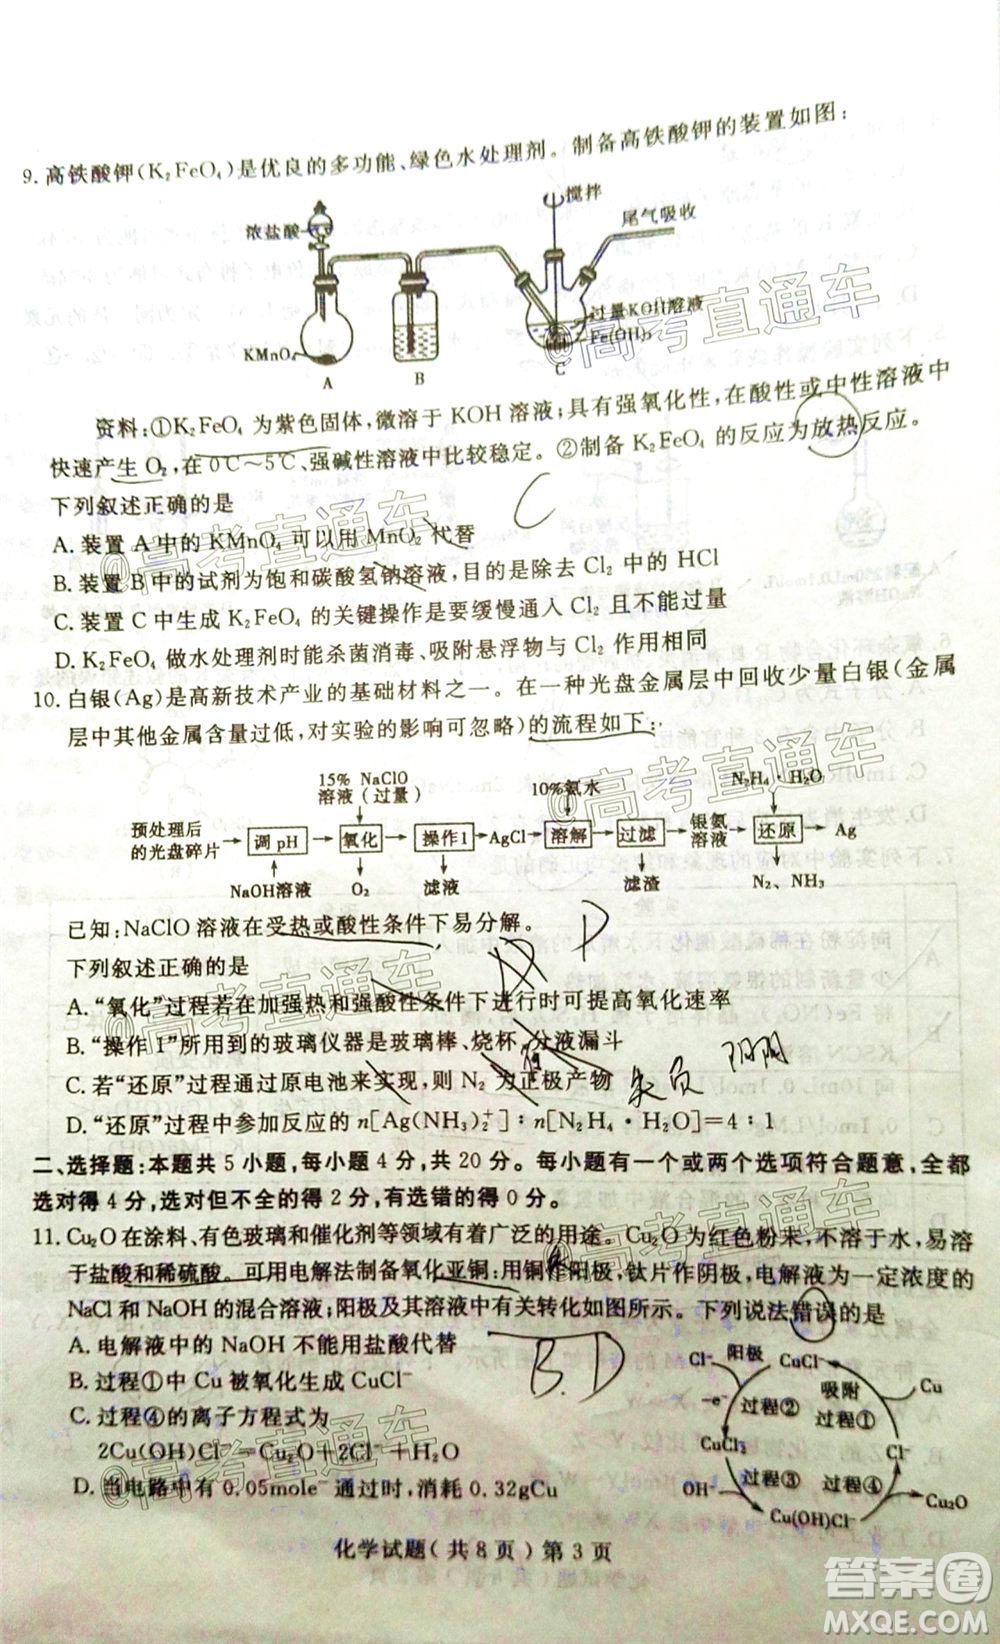 9. 高铁酸钾(K₂FeO₄)是优良的多功能、绿色水处理剂。制备高铁酸钾的装置如图:
搅拌
浓盐酸
尾气吸收
过量KOH溶液
Fe(OH)₃
KMnO₄
A
B
C
资料:①K₂FeO₄ 为紫色固体,微溶于 KOH 溶液;具有强氧化性,在酸性或中性溶液中
快速产生 O₂,在 0℃～5℃、强碱性溶液中比较稳定。②制备 K₂FeO₄ 的反应为放热反应。
下列叙述正确的是
C
A. 装置 A 中的 KMnO₄ 可以用 MnO₂ 代替
B. 装置 B 中的试剂为饱和碳酸氢钠溶液,目的是除去 Cl₂ 中的 HCl
C. 装置 C 中生成 K₂FeO₄ 的关键操作是要缓慢通入 Cl₂ 且不能过量
D. K₂FeO₄ 做水处理剂时能杀菌消毒、吸附悬浮物与 Cl₂ 作用相同
10. 白银(Ag)是高新技术产业的基础材料之一。在一种光盘金属层中回收少量白银(金属
层中其他金属含量过低,对实验的影响可忽略)的流程如下:
15% NaClO
溶液(过量)
10%氨水
N₂H₄·H₂O
预处理后
的光盘碎片
调 pH
氧化
操作1
AgCl
溶解
过滤
银氨
溶液
还原
Ag
NaOH溶液
O₂
滤液
滤渣
N₂、NH₃
已知:NaClO 溶液在受热或酸性条件下易分解。
D
下列叙述正确的是
A. “氧化”过程若在加强热和强酸性条件下进行时可提高氧化速率
B. “操作 1”所用到的玻璃仪器是玻璃棒、烧杯、分液漏斗
C. 若“还原”过程通过原电池来实现,则 N₂ 为正极产物
D. “还原”过程中参加反应的 n[Ag(NH₃)₂⁺]:n[N₂H₄·H₂O]=4:1
二、选择题:本题共 5 小题,每小题 4 分,共 20 分。每小题有一个或两个选项符合题意,全都
选对得 4 分,选对但不全的得 2 分,有选错的得 0 分。
11. Cu₂O 在涂料、有色玻璃和催化剂等领域有着广泛的用途。Cu₂O 为红色粉末,不溶于水,易溶
于盐酸和稀硫酸。可用电解法制备氧化亚铜:用铜作阳极,钛片作阴极,电解液为一定浓度的
NaCl 和 NaOH 的混合溶液;阳极及其溶液中有关转化如图所示。下列说法错误的是
B.D
A. 电解液中的 NaOH 不能用盐酸代替
B. 过程①中 Cu 被氧化生成 CuCl⁻
C. 过程④的离子方程式为
2Cu(OH)Cl⁻=Cu₂O+2Cl⁻+H₂O
D. 当电路中有 0.05mole⁻ 通过时,消耗 0.32gCu
Cl⁻
阳极
CuCl⁻
吸附
Cu
-e⁻
过程②
过程①
CuCl₂
Cl⁻
过程③
过程④
OH⁻
Cu(OH)Cl⁻
Cu₂O
化学试题(共 8 页)第 3 页
@高考直通车
@高考直通车
@高考直通车
@高考直通车
@高考直通车
@高考直通车
答案圈
MXQE.COM